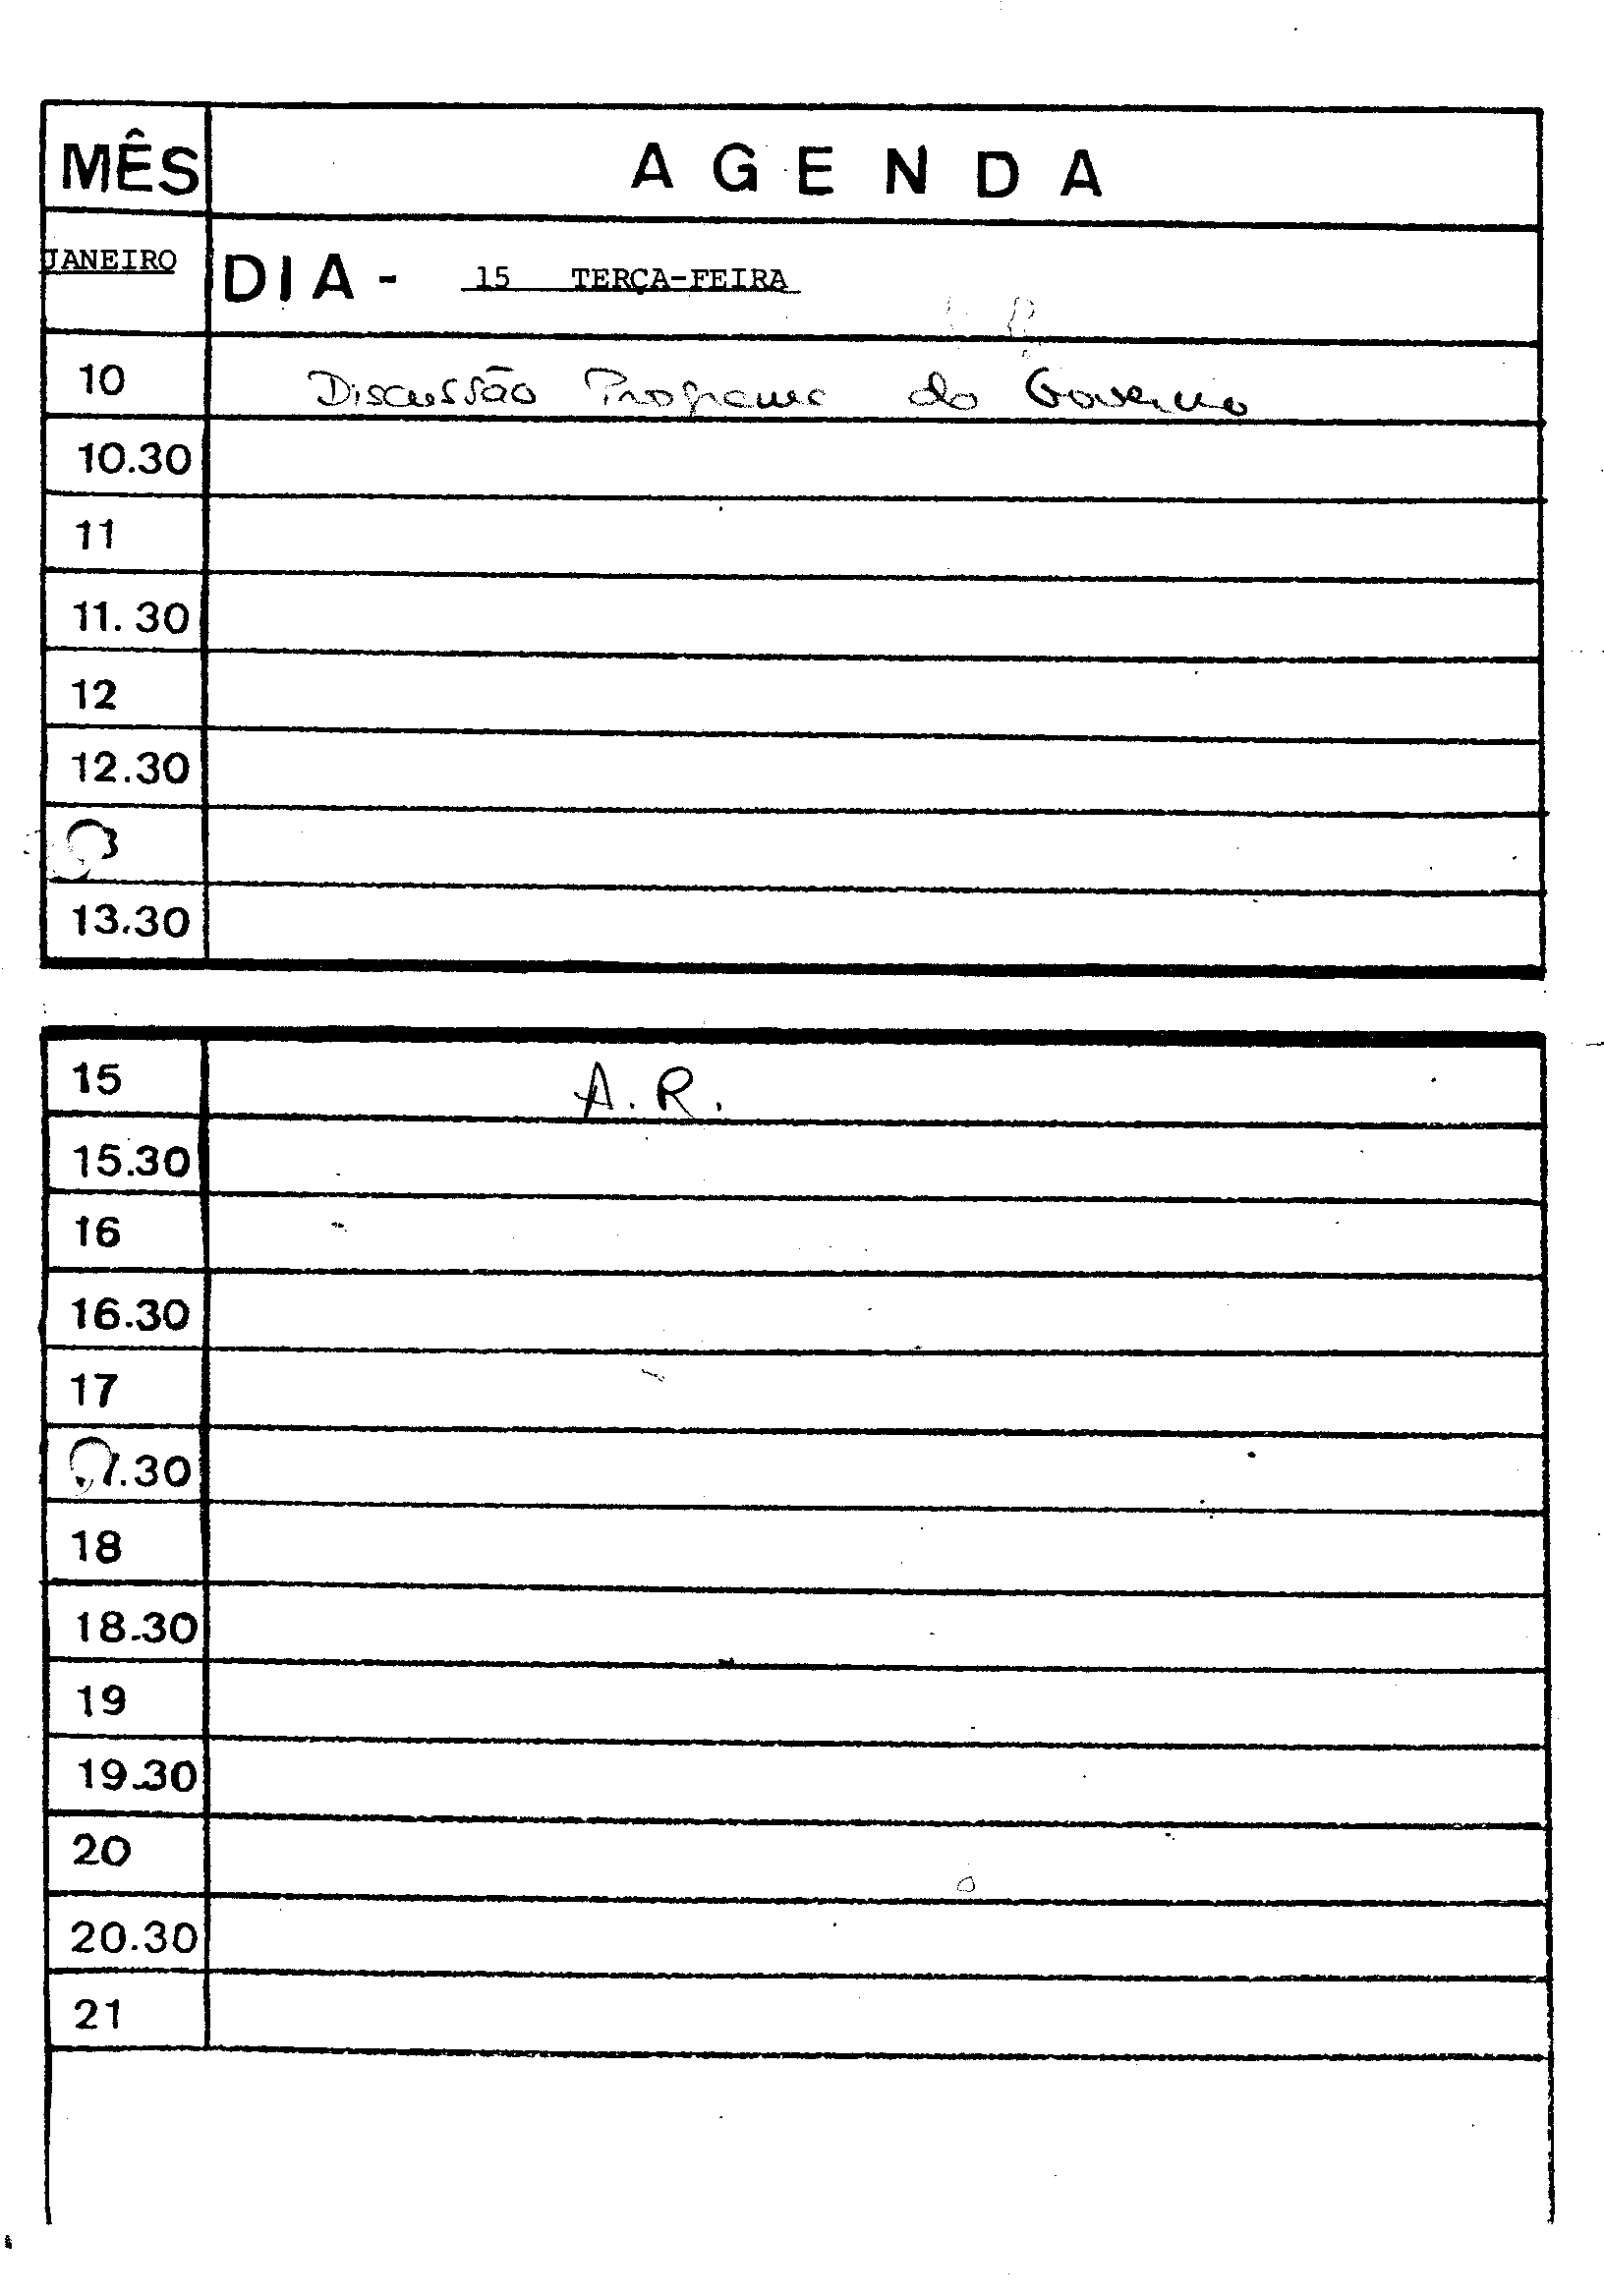 MÊS AGENDA
JANEIRO DIA - 15 TERÇA-FEIRA
10 Discussão Programa do Governo
10.30
11
11.30
12
12.30
3
13.30
15 A.R.
15.30
16
16.30
17
7.30
18
18.30
19
19.30
20
20.30
21